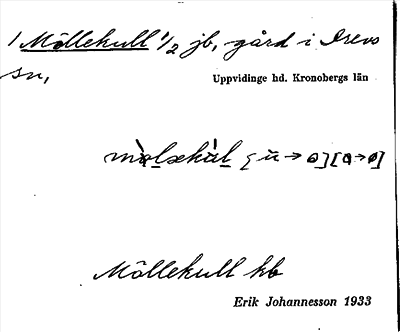 1 Möllekull 1/2 jb, gård i Drevs
sn,
Uppvidinge hd. Kronobergs län
Möllekull hb
Erik Johannesson 1933